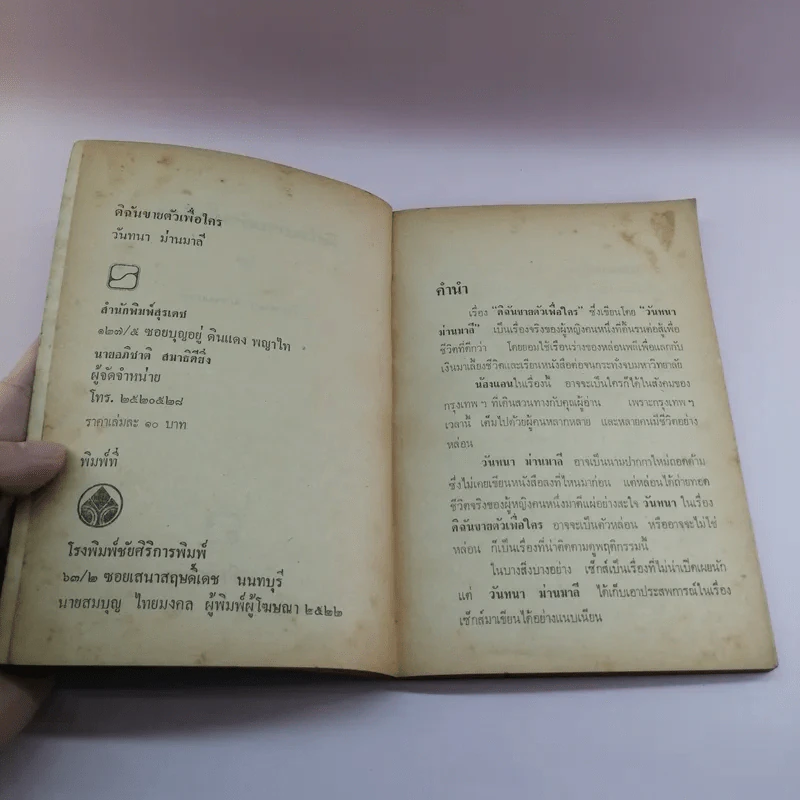 ดิฉันขายตัวเพื่อใคร
วันทนา ม่านมาลี
สำนักพิมพ์สุรเดช
๑๒๗/๕ ซอยบุญอยู่ ดินแดง พญาไท
นายอภิชาติ สมาธิดียิ่ง
ผู้จัดจำหน่าย
โทร. ๒๕๒๐๕๒๘
ราคาเล่มละ ๑๐ บาท
พิมพ์ที่
โรงพิมพ์ชัยศิริการพิมพ์
๖๓/๒ ซอยเสนาสฤษดิ์เดช นนทบุรี
นายสมบุญ ไทยมงคล ผู้พิมพ์ผู้โฆษณา ๒๕๒๒
คำนำ
เรื่อง "ดิฉันขายตัวเพื่อใคร" ซึ่งเขียนโดย "วันทนา
ม่านมาลี" เป็นเรื่องจริงของผู้หญิงคนหนึ่งที่ดิ้นรนต่อสู้เพื่อ
ชีวิตที่ดีกว่า โดยยอมใช้เรือนร่างของหล่อนพลีเพื่อแลกกับ
เงินมาเลี้ยงชีวิตและเรียนหนังสือต่อจนกระทั่งจบมหาวิทยาลัย
น้องแอนในเรื่องนี้ อาจจะเป็นใครก็ได้ในสังคมของ
กรุงเทพฯ ที่เดินสวนทางกับคุณผู้อ่าน เพราะกรุงเทพฯ
เวลานี้ เต็มไปด้วยผู้คนหลากหลาย และหลายคนมีชีวิตอย่าง
หล่อน
วันทนา ม่านมาลี อาจจะเป็นนามปากกาใหม่ถอดด้าม
ซึ่งไม่เคยเขียนหนังสือลงที่ไหนมาก่อน แต่หล่อนได้ถ่ายทอด
ชีวิตจริงของผู้หญิงคนหนึ่งมาตีแผ่อย่างสะใจ วันทนา ในเรื่อง
ดิฉันขายตัวเพื่อใคร อาจจะเป็นตัวหล่อน หรืออาจจะไม่ใช่
หล่อน ก็เป็นเรื่องที่น่าติดตามดูพฤติกรรมนี้
ในบางสิ่งบางอย่าง เซ็กส์เป็นเรื่องที่ไม่น่าเปิดเผยนัก
แต่ วันทนา ม่านมาลี ได้เก็บเอาประสพการณ์ในเรื่อง
เซ็กส์มาเขียนได้อย่างแนบเนียน